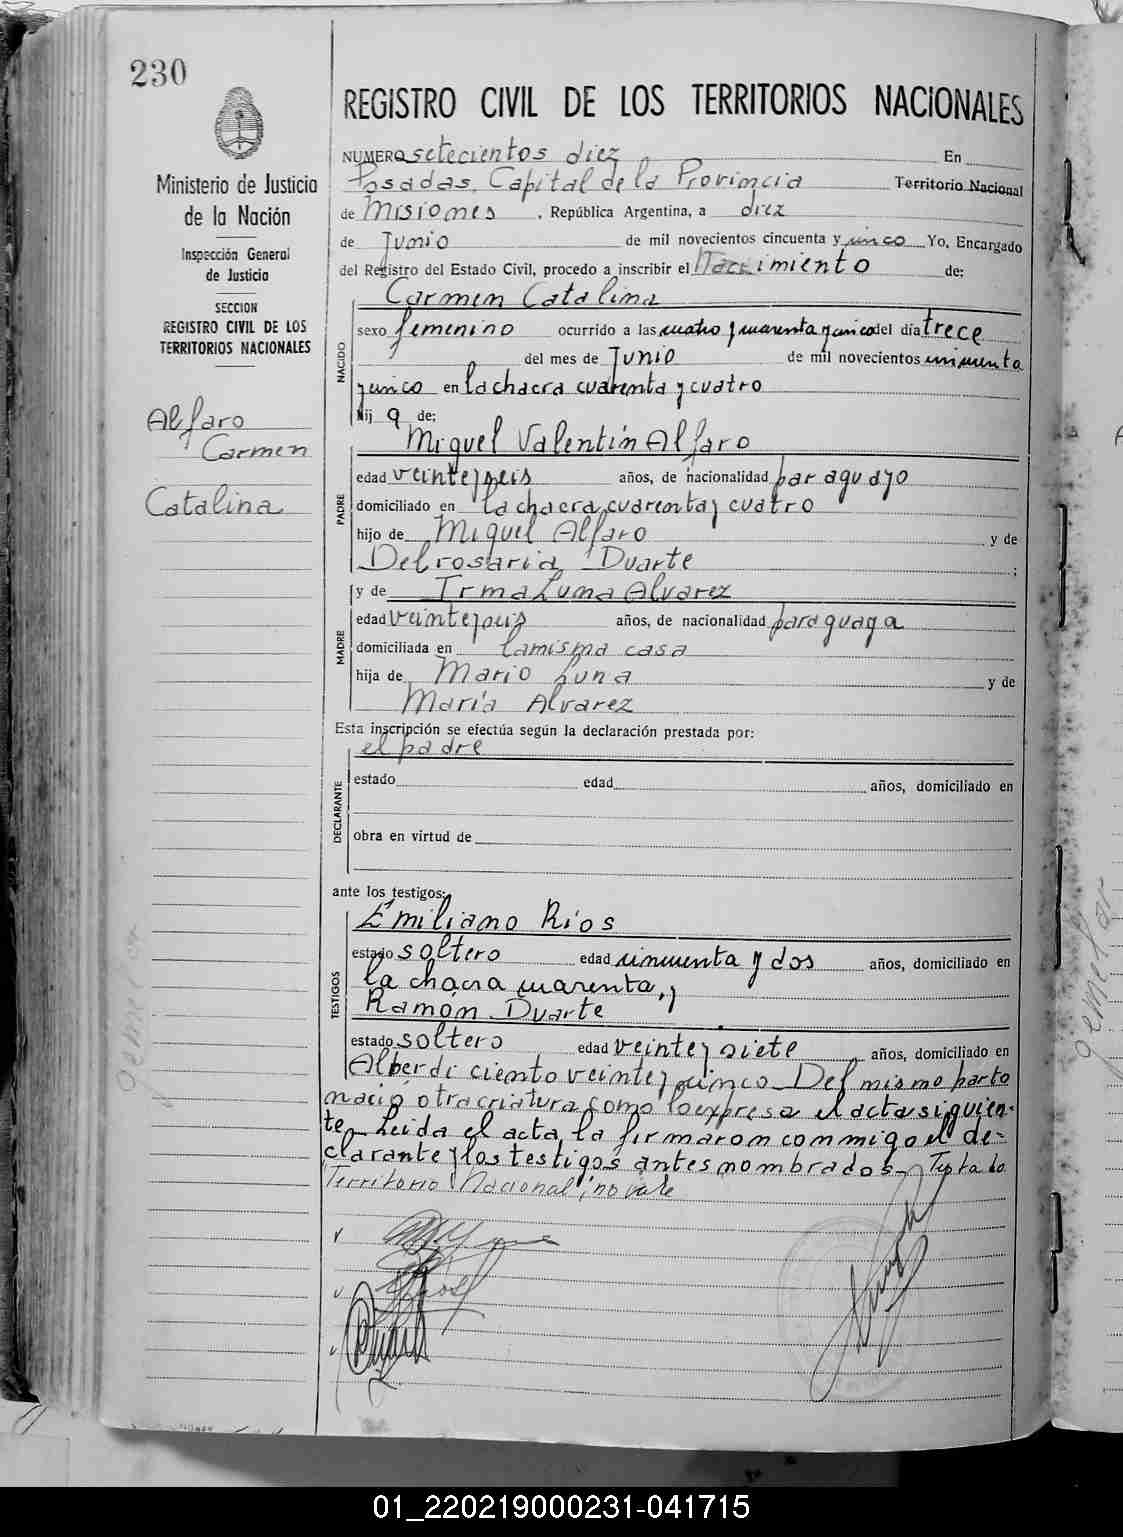 230
REGISTRO CIVIL DE LOS TERRITORIOS NACIONALES
Ministerio de Justicia
de la Nación
Inspección General
de Justicia
SECCION
REGISTRO CIVIL DE LOS
TERRITORIOS NACIONALES
Alfaro
Carmen
Catalina
gemelar
NUMERO setecientos diez En
Posadas, Capital de la Provincia Territorio Nacional
de Misiones, República Argentina, a diez
de Junio de mil novecientos cincuenta y cinco Yo, Encargado
del Registro del Estado Civil, procedo a inscribir el Nacimiento de:
Carmen Catalina
NACIDO
sexo femenino ocurrido a las cuatro y cuarenta y cinco del día trece
del mes de Junio de mil novecientos cincuenta
y cinco en la chacra cuarenta y cuatro
hij a de:
Miguel Valentín Alfaro
PADRE
edad veinte y seis años, de nacionalidad paraguayo
domiciliado en la chacra cuarenta y cuatro
hijo de Miguel Alfaro y de
Del rosaria Duarte ;
y de Irma Luna Alvarez
MADRE
edad veinte y seis años, de nacionalidad paraguaya
domiciliada en la misma casa
hija de Mario Luna y de
María Alvarez
Esta inscripción se efectúa según la declaración prestada por:
el padre
DECLARANTE
estado edad años, domiciliado en
obra en virtud de
ante los testigos:
Emiliano Ríos
TESTIGOS
estado soltero edad cincuenta y dos años, domiciliado en
la chacra cuarenta, y
Ramón Duarte
estado soltero edad veinte y siete años, domiciliado en
Alberdi ciento veinte y cinco_ Del mismo parto
nació otra criatura, como lo expresa el acta siguien-
te_ Leida el acta, la firmaron conmigo el de-
clarante y los testigos antes nombrados_ Testado
Territorio Nacional; no vale
gemelar
01_220219000231-041715